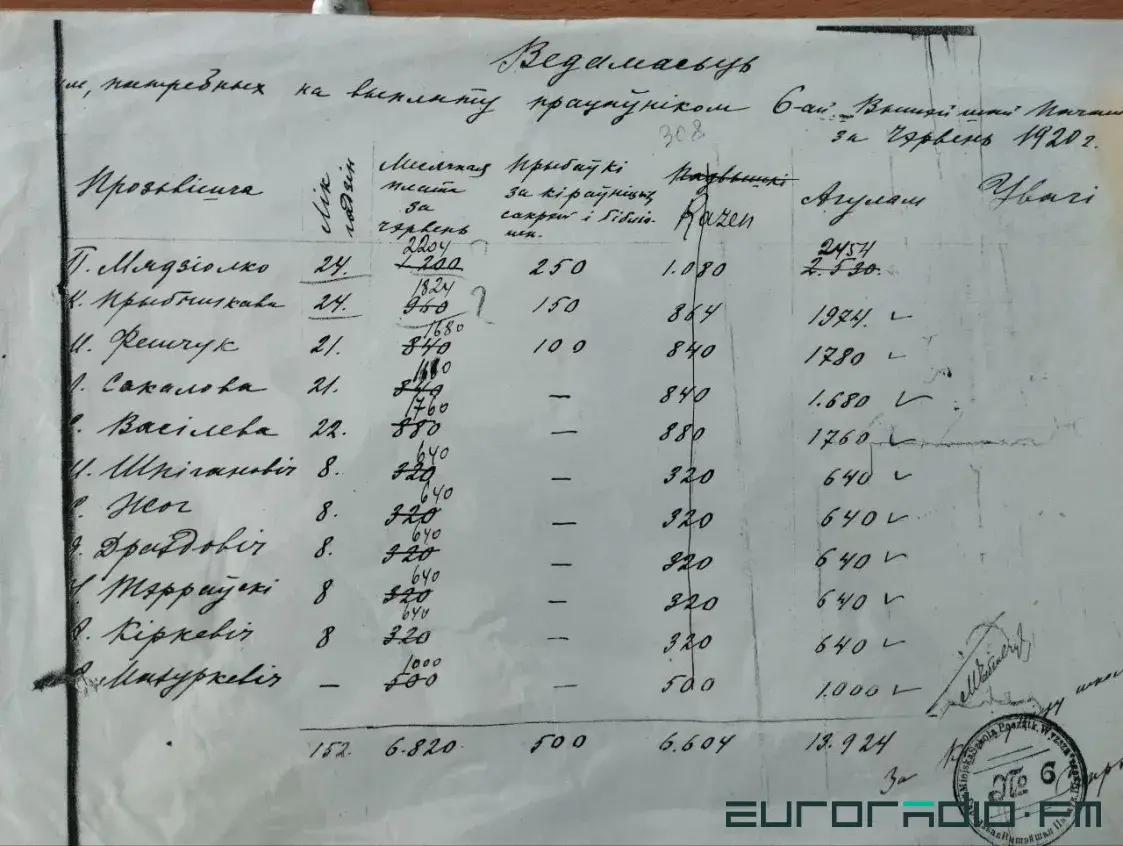 Ведамасьць
патребных на выплату працаўніком 6-ай Вышэйшай
за Чэрвень 1920 г.
308
Прозьвішча Лік гадзін Месячная плата за чэрвень Прыбаўкі за кіраўніцтв. сакрет. і біблі-чен. Надвышкі Razen Агулам Увагі
П. Мядзіолко 24. 2204 1200 ? 250 1.080 2454 2.530.
К. 24. 1824 960 ? 150 864 1974.
Фешчук 21. 1680 840 100 840 1780
Сакалова 21. 1680 840 — 840 1.680
Васілева 22. 1760 880 — 880 1760
8. 640 320 — 320 640
Жог 8. 640 320 — 320 640
Драздовіч 8. 640 320 — 320 640
Тэрраўскі 8 640 320 — 320 640
Кіркевіч 8 640 320 — 320 640
Мазуркевіч — 1000 500 — 500 1.000
152. 6.820. 500 6.604 13.924
За
№ 6
EURORADIO.FM